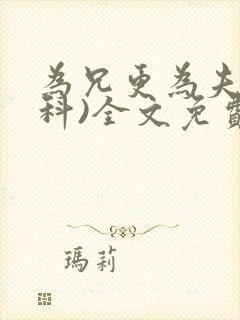 為兄更為夫
科)全文免費
瑪莉